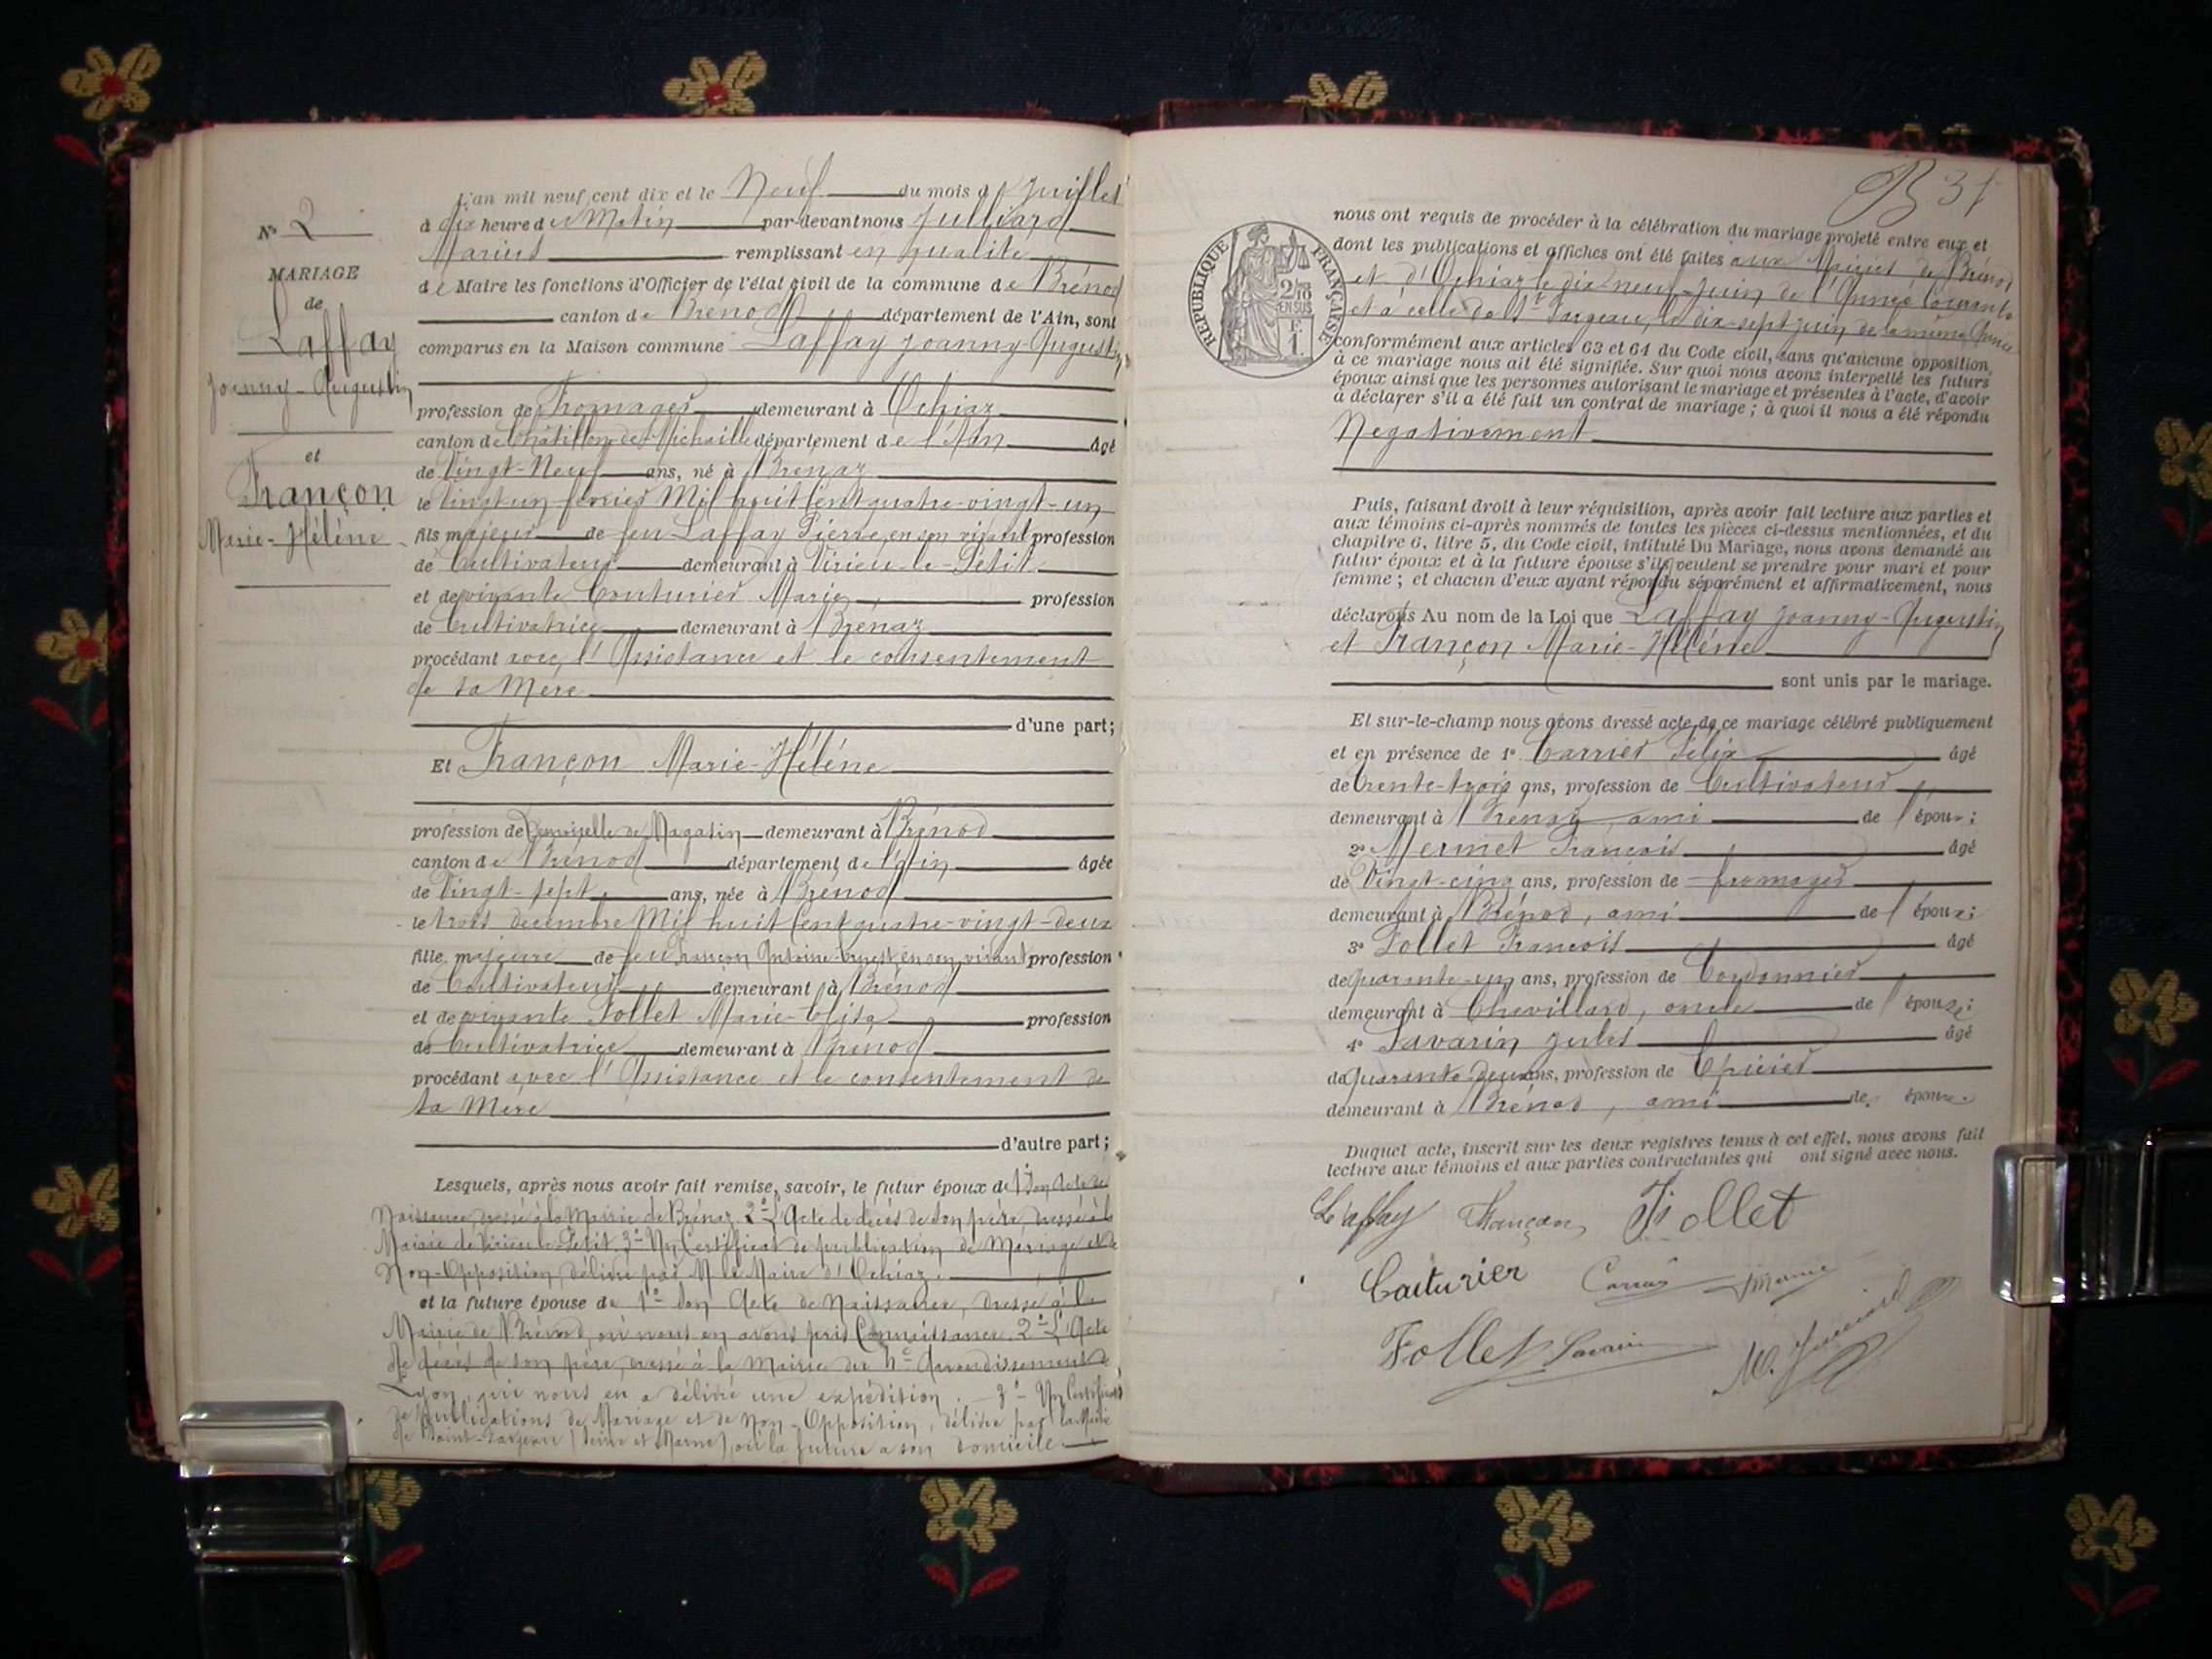 N° 2
MARIAGE
de
Laffay
Joanny-Augustin
et
Françon
Marie-Hélène
L'an mil neuf cent dix et le Neuf du mois de Juillet
à dix heure des Matin par-devant nous Julliard
Marius remplissant en qualité
de Maire les fonctions d'Officier de l'état civil de la commune de Brénod
canton de Brénod département de l'Ain, sont
comparus en la Maison commune Laffay Joanny-Augustin
profession de Fromager demeurant à Ochiaz
canton de Châtillon-de-Michaille département de l'Ain âgé
de Vingt-Neuf ans, né à Brénaz
le vingt un février Mil huit Cent quatre-vingt-un
fils majeur de feu Laffay Pierre, en son vivant profession
de Cultivateur demeurant à Virieu-le-Petit
et de vivante Couturier Marie profession
de Cultivatrice demeurant à Brénaz
procédant avec l'Assistance et le consentement
de sa Mère
d'une part;
Et Françon Marie-Hélène
profession de Demoiselle de Magasin demeurant à Brénod
canton de Brénod département de l'Ain âgée
de Vingt-sept ans, née à Brénod
le trois décembre Mil huit Cent quatre-vingt-deux
fille majeure de feu Françon Antoine-Ernest en son vivant profession
de Cultivateur demeurant à Brénod
et de vivante Follet Marie-Elisa profession
de Cultivatrice demeurant à Brénod
procédant avec l'Assistance et le consentement de
sa Mère
d'autre part;
Lesquels, après nous avoir fait remise, savoir, le futur époux de 1° Son Acte de
Naissance, dressé à la Mairie de Brénaz 2° L'Acte de décès de son père, dressé à la
Mairie de Virieu-le-Petit. 3° Un Certificat de publication de Mariage et de
Non-Opposition, délivré par M le Maire d'Ochiaz.
et la future épouse de 1° Son Acte de Naissance, dressé à la
Mairie de Brénod, où nous en avons pris Connaissance. 2° L'Acte
de décès de son père, dressé à la Mairie du 4e Arrondissement de
Lyon, qui nous en a délivré une expédition. 3° Un Certificat
de Publications de Mariage et de Non-Opposition, délivré par la Mairie
de Saint-Fargeau (Seine et Marne), où la future a son domicile
B 31
REPUBLIQUE FRANÇAISE
2/10
EN SUS
F.
1.
nous ont requis de procéder à la célébration du mariage projeté entre eux et
dont les publications et affiches ont été faites aux Mairies de Brénod
et d'Ochiaz le dix-neuf Juin de l'Année Courante
et à celle de St Fargeau, le dix-sept juin de la même Année
conformément aux articles 63 et 64 du Code civil, sans qu'aucune opposition
à ce mariage nous ait été signifiée. Sur quoi nous avons interpellé les futurs
époux ainsi que les personnes autorisant le mariage et présentes à l'acte, d'avoir
à déclarer s'il a été fait un contrat de mariage; à quoi il nous a été répondu
Négativement
Puis, faisant droit à leur réquisition, après avoir fait lecture aux parties et
aux témoins ci-après nommés de toutes les pièces ci-dessus mentionnées, et du
chapitre 6, titre 5, du Code civil, intitulé Du Mariage, nous avons demandé au
futur époux et à la future épouse s'ils veulent se prendre pour mari et pour
femme; et chacun d'eux ayant répondu séparément et affirmativement, nous
déclarons Au nom de la Loi que Laffay Joanny-Augustin
et Françon Marie-Hélène
sont unis par le mariage.
Et sur-le-champ nous avons dressé acte de ce mariage célébré publiquement
et en présence de 1° Carrier Félix âgé
de trente-trois ans, profession de Cultivateur
demeurant à Brénaz, ami de l'époux;
2° Mermet François âgé
de Vingt-cinq ans, profession de fromager
demeurant à Brénod, ami de l'époux;
3° Follet François âgé
de quarante-un ans, profession de Cordonnier
demeurant à Chevillard, oncle de l'épouse;
4° Savarin Jules âgé
de quarante-deux ans, profession de Epicier
demeurant à Brénod, ami de épouse.
Duquel acte, inscrit sur les deux registres tenus à cet effet, nous avons fait
lecture aux témoins et aux parties contractantes qui ont signé avec nous.
Laffay Françon Follet
Couturier
Follet Savarin M. Julliard